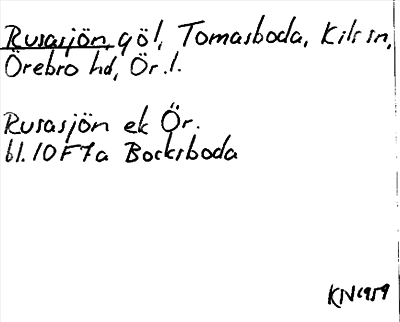 Rusasjön, göl, Tomasboda, Kils sn,
Örebro hd, Ör. l.
Rusasjön ek Ör.
bl. 10F7a Bocksboda
KN 1959